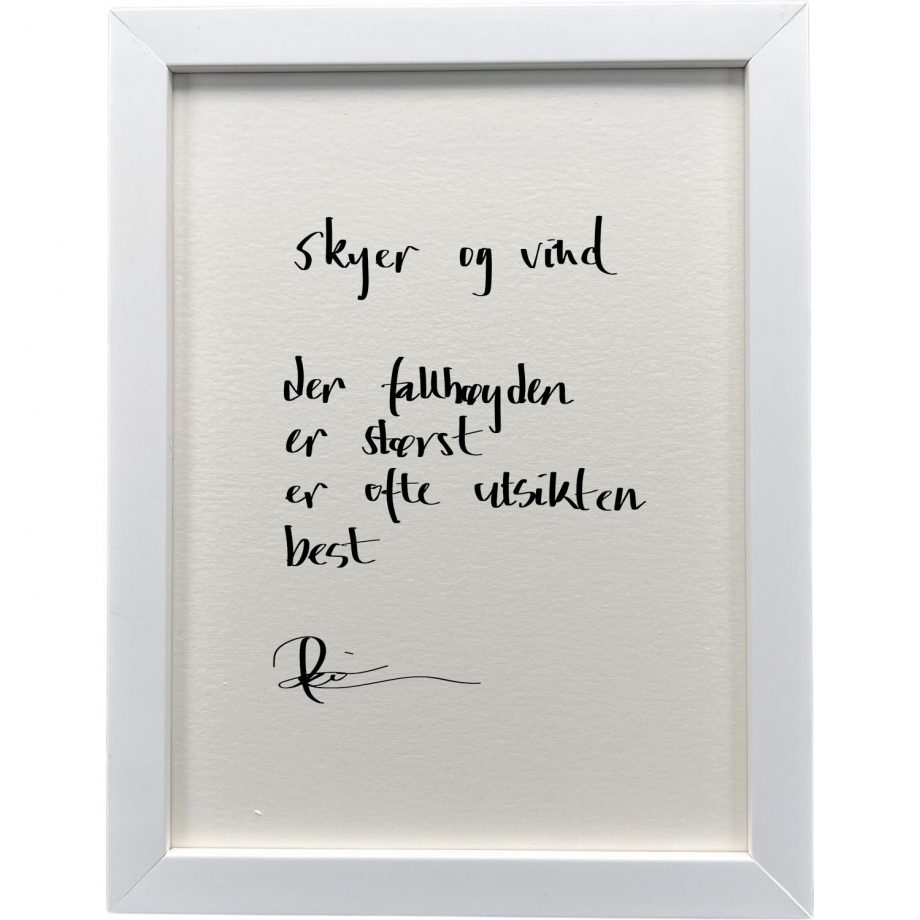 skyer og vind
der fallhøyden
er størst
er ofte utsikten
best